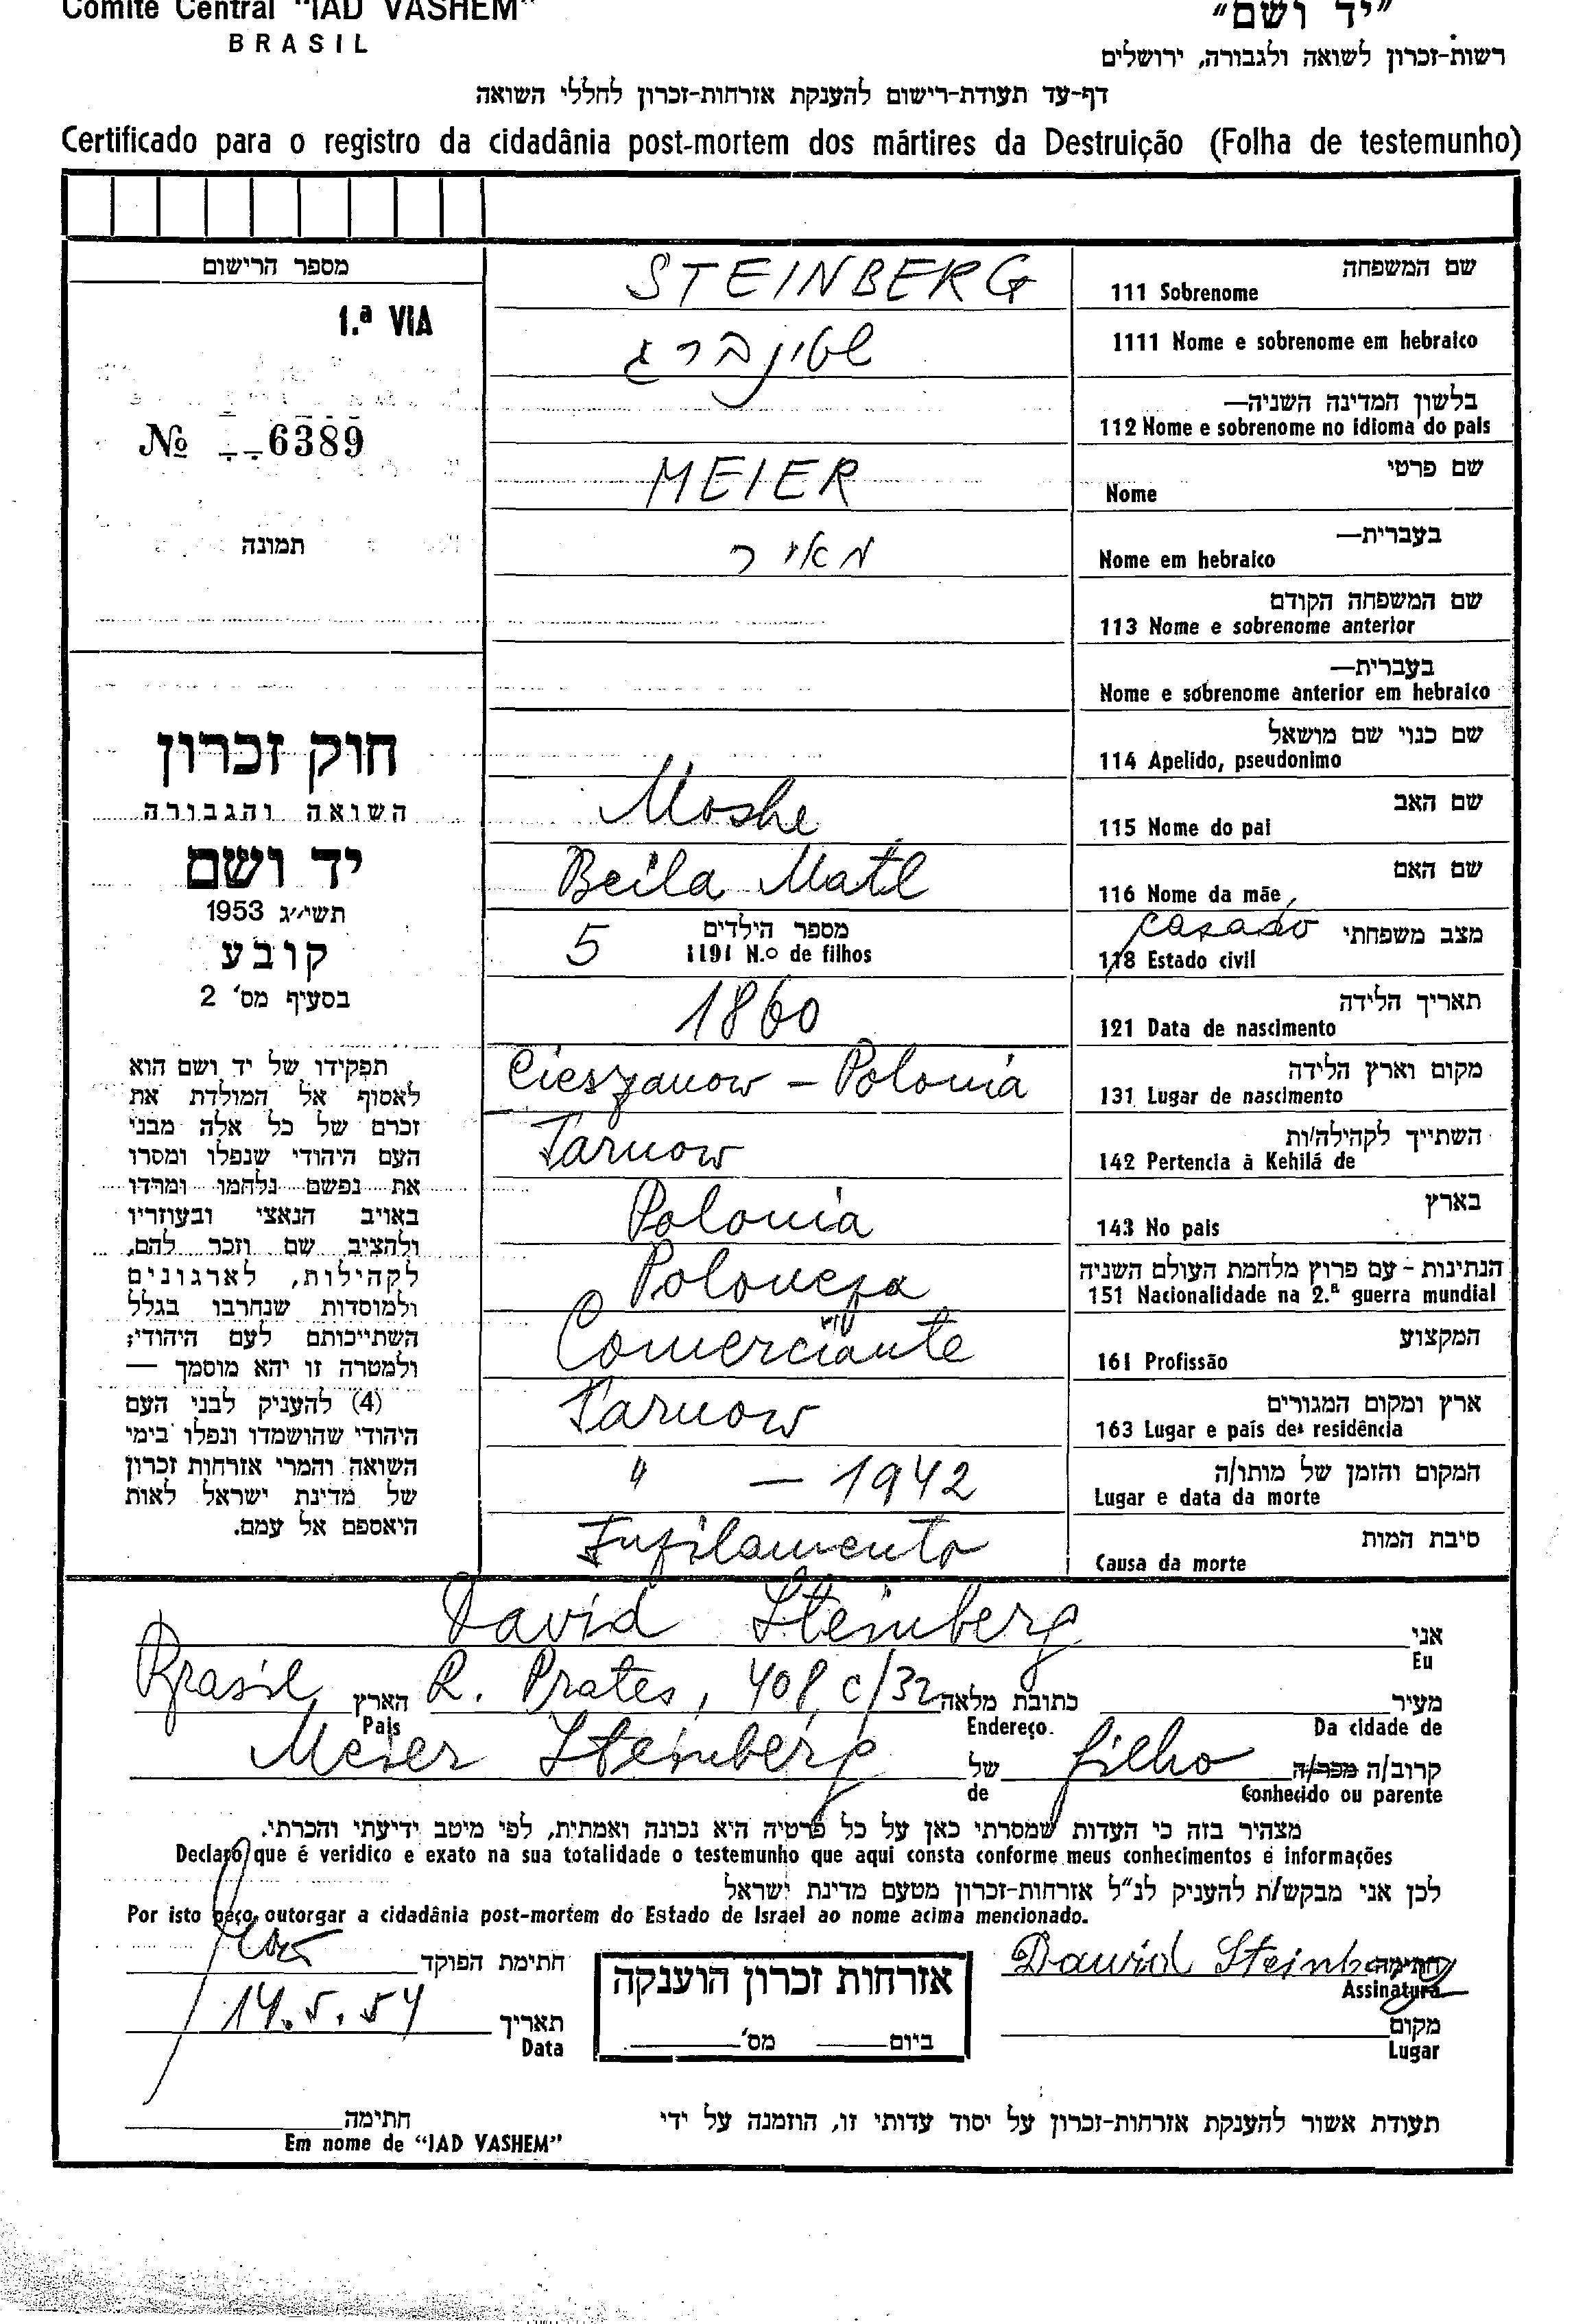 Comité Central "IAD VASHEM"
BRASIL
"יד ושם"
רשות-זכרון לשואה ולגבורה, ירושלים
דף-עד תעודת-רישום להענקת אזרחות-זכרון לחללי השואה
Certificado para o registro da cidadânia post-mortem dos mártires da Destruição (Folha de testemunho)
מספר הרישום
1.ª VIA
№ 6389
תמונה
חוק זכרון
השואה והגבורה
יד ושם
תשי״ג 1953
קובע
בסעיף מס' 2
תפקידו של יד ושם הוא
לאסוף אל המולדת את
זכרם של כל אלה מבני
העם היהודי שנפלו ומסרו
את נפשם נלחמו ומרדו
באויב הנאצי ובעוזריו
ולהציב שם וזכר להם,
לקהילות, לארגונים
ולמוסדות שנחרבו בגלל
השתייכותם לעם היהודי;
ולמטרה זו יהא מוסמך —
(4) להעניק לבני העם
היהודי שהושמדו ונפלו בימי
השואה והמרי אזרחות זכרון
של מדינת ישראל לאות
היאספם אל עמם.
שם המשפחה
111 Sobrenome STEINBERG
1111 Nome e sobrenome em hebraico שטינברג
בלשון המדינה השניה—
112 Nome e sobrenome no idioma do pais
שם פרטי
Nome MEIER
בעברית—
Nome em hebraico מאיר
שם המשפחה הקודם
113 Nome e sobrenome anterior
בעברית—
Nome e sobrenome anterior em hebraico
שם כנוי שם מושאל
114 Apelido, pseudonimo
שם האב
115 Nome do pai Moshe
שם האם
116 Nome da mãe Beila Matl
מצב משפחתי casado
118 Estado civil
מספר הילדים
1191 N.º de filhos 5
תאריך הלידה
121 Data de nascimento 1860
מקום וארץ הלידה
131 Lugar de nascimento Cieszanow - Polonia
השתייך לקהילה/ות
142 Pertencia à Kehilá de Tarnow
בארץ
143 No pais Polonia
הנתינות - עם פרוץ מלחמת העולם השניה
151 Nacionalidade na 2.ª guerra mundial Polonesa
המקצוע
161 Profissão Comerciante
ארץ ומקום המגורים
163 Lugar e país de residência Tarnow
המקום והזמן של מותו/ה
Lugar e data da morte " — 1942
סיבת המות
Causa da morte Fusilamento
אני David Steinberg
Eu
מעיר כתובת מלאה R. Prates, 408, c/32 הארץ Brasil
Da cidade de Endereço. Pais
קרוב/ה מכר/ה filho של Meier Steinberg
Conhecido ou parente de
מצהיר בזה כי העדות שמסרתי כאן על כל פרטיה היא נכונה ואמתית, לפי מיטב ידיעתי והכרתי.
Declaro que é veridico e exato na sua totalidade o testemunho que aqui consta conforme meus conhecimentos e informações
לכן אני מבקש/ת להעניק לנ"ל אזרחות-זכרון מטעם מדינת ישראל
Por isto peço outorgar a cidadânia post-mortem do Estado de Israel ao nome acima mencionado.
חתימה Dawid Steinberg
Assinatura
חתימת הפוקד
אזרחות זכרון הוענקה
ביום מס'
מקום
Lugar
תאריך 14.5.54
Data
תעודת אשור להענקת אזרחות-זכרון על יסוד עדותי זו, הוזמנה על ידי
חתימה
Em nome de "IAD VASHEM"